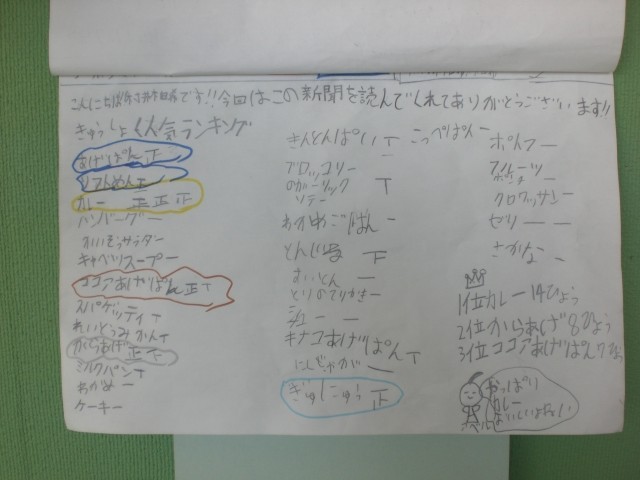 こんにちは
です!!今回はこの新聞を読んでくれてありがとうございます!!
きゅうしょく人気ランキング
あげぱん 正
ソフトめん 正
カレー 正 正 正
ハンバーグ 一
かいそうサラダ 一
キャベツスープ 一
ココアあげぱん 正 T
スパゲッティ T
れいとうみかん T
からあげ 正 下
ミルクパン T
わかめ 一
ケーキ 一
きんとんぱい T
ブロッコリー
のガーリック
ソテー T
わかめごはん 一
とんじる 下
すいとん 一
とりのてりやき 一
シュー 一
キナコあげぱん T
にくじゃが 一
ぎゅうにゅう 正
こっぺぱん 一
ポトフ 一
クロワッサン
ゼリー 一
さかな 一
1位カレー 14ひょう
2位からあげ 8ひょう
3位ココアあげぱん 7ひょう
やっぱり
カレー